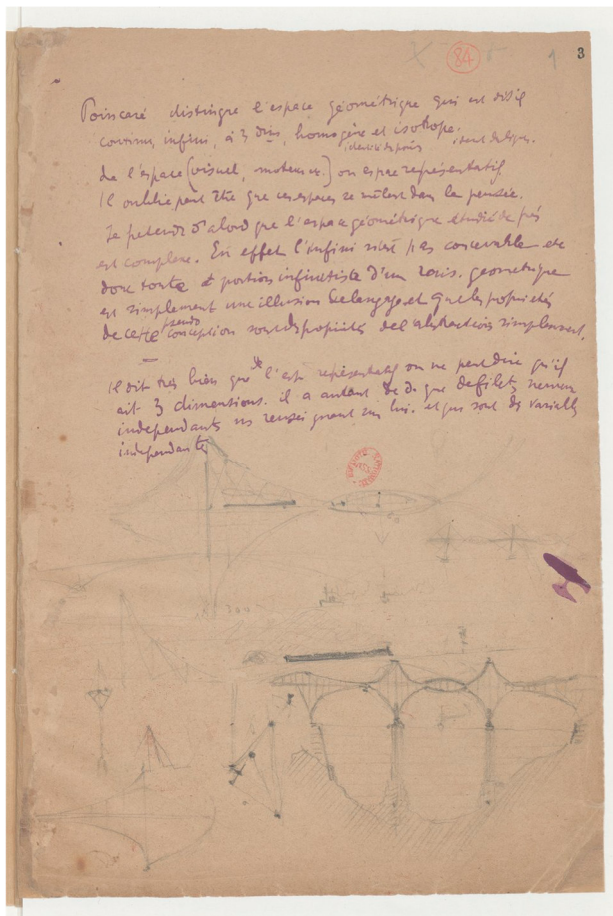 84
1
3
Poincaré distingue l'espace géométrique qui est dit-il
continu, infini, à 3 dims, homogène et isotope.
identité des points
de l'espace (visuel, moteur.) ou espace représentatif
Il oublie peut être que ces espaces se mêlent dans la pensée.
Je prétends d'abord que l'espace géométrique étudié de près
est complexe. En effet l'infini n'est pas concevable etc
donc toute portion d'un rais. géometrique
est simplement une illusion de langage et que les propriétés
de cette pseudo conception sont des propriétés de l'abstraction simplement.
Il dit très bien que l'esp. représentatif on ne peut dire qu'il
ait 3 dimensions. il a autant de d. que de filets nerveux
independants nous renseignant sur lui. et qui sont des variables
independantes
300